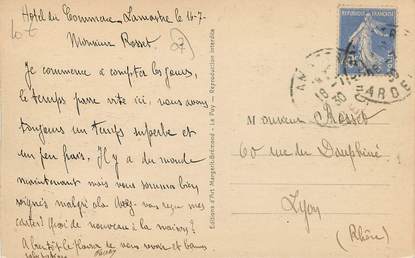 Hotel du Commerce Lamastre le 16-7-
Monsieur Rosset
Je commence a compter les jours,
le temps passe vite ici, nous avons
toujours un temps superbe et
un peu frais. Il y a du monde
maintenant mais nous sommes bien
soignés malgré cela vous
cartes? quoi de nouveau à la maison?
A bientôt le plaisir de vous revoir et bonne
Editions d'Art Margerit-Brémond - Le Puy - Reproduction interdite
REPUBLIQUE FRANÇAISE
ARDECHE
30
Monsieur Rosset
60 rue du Dauphiné
Lyon
(Rhône)